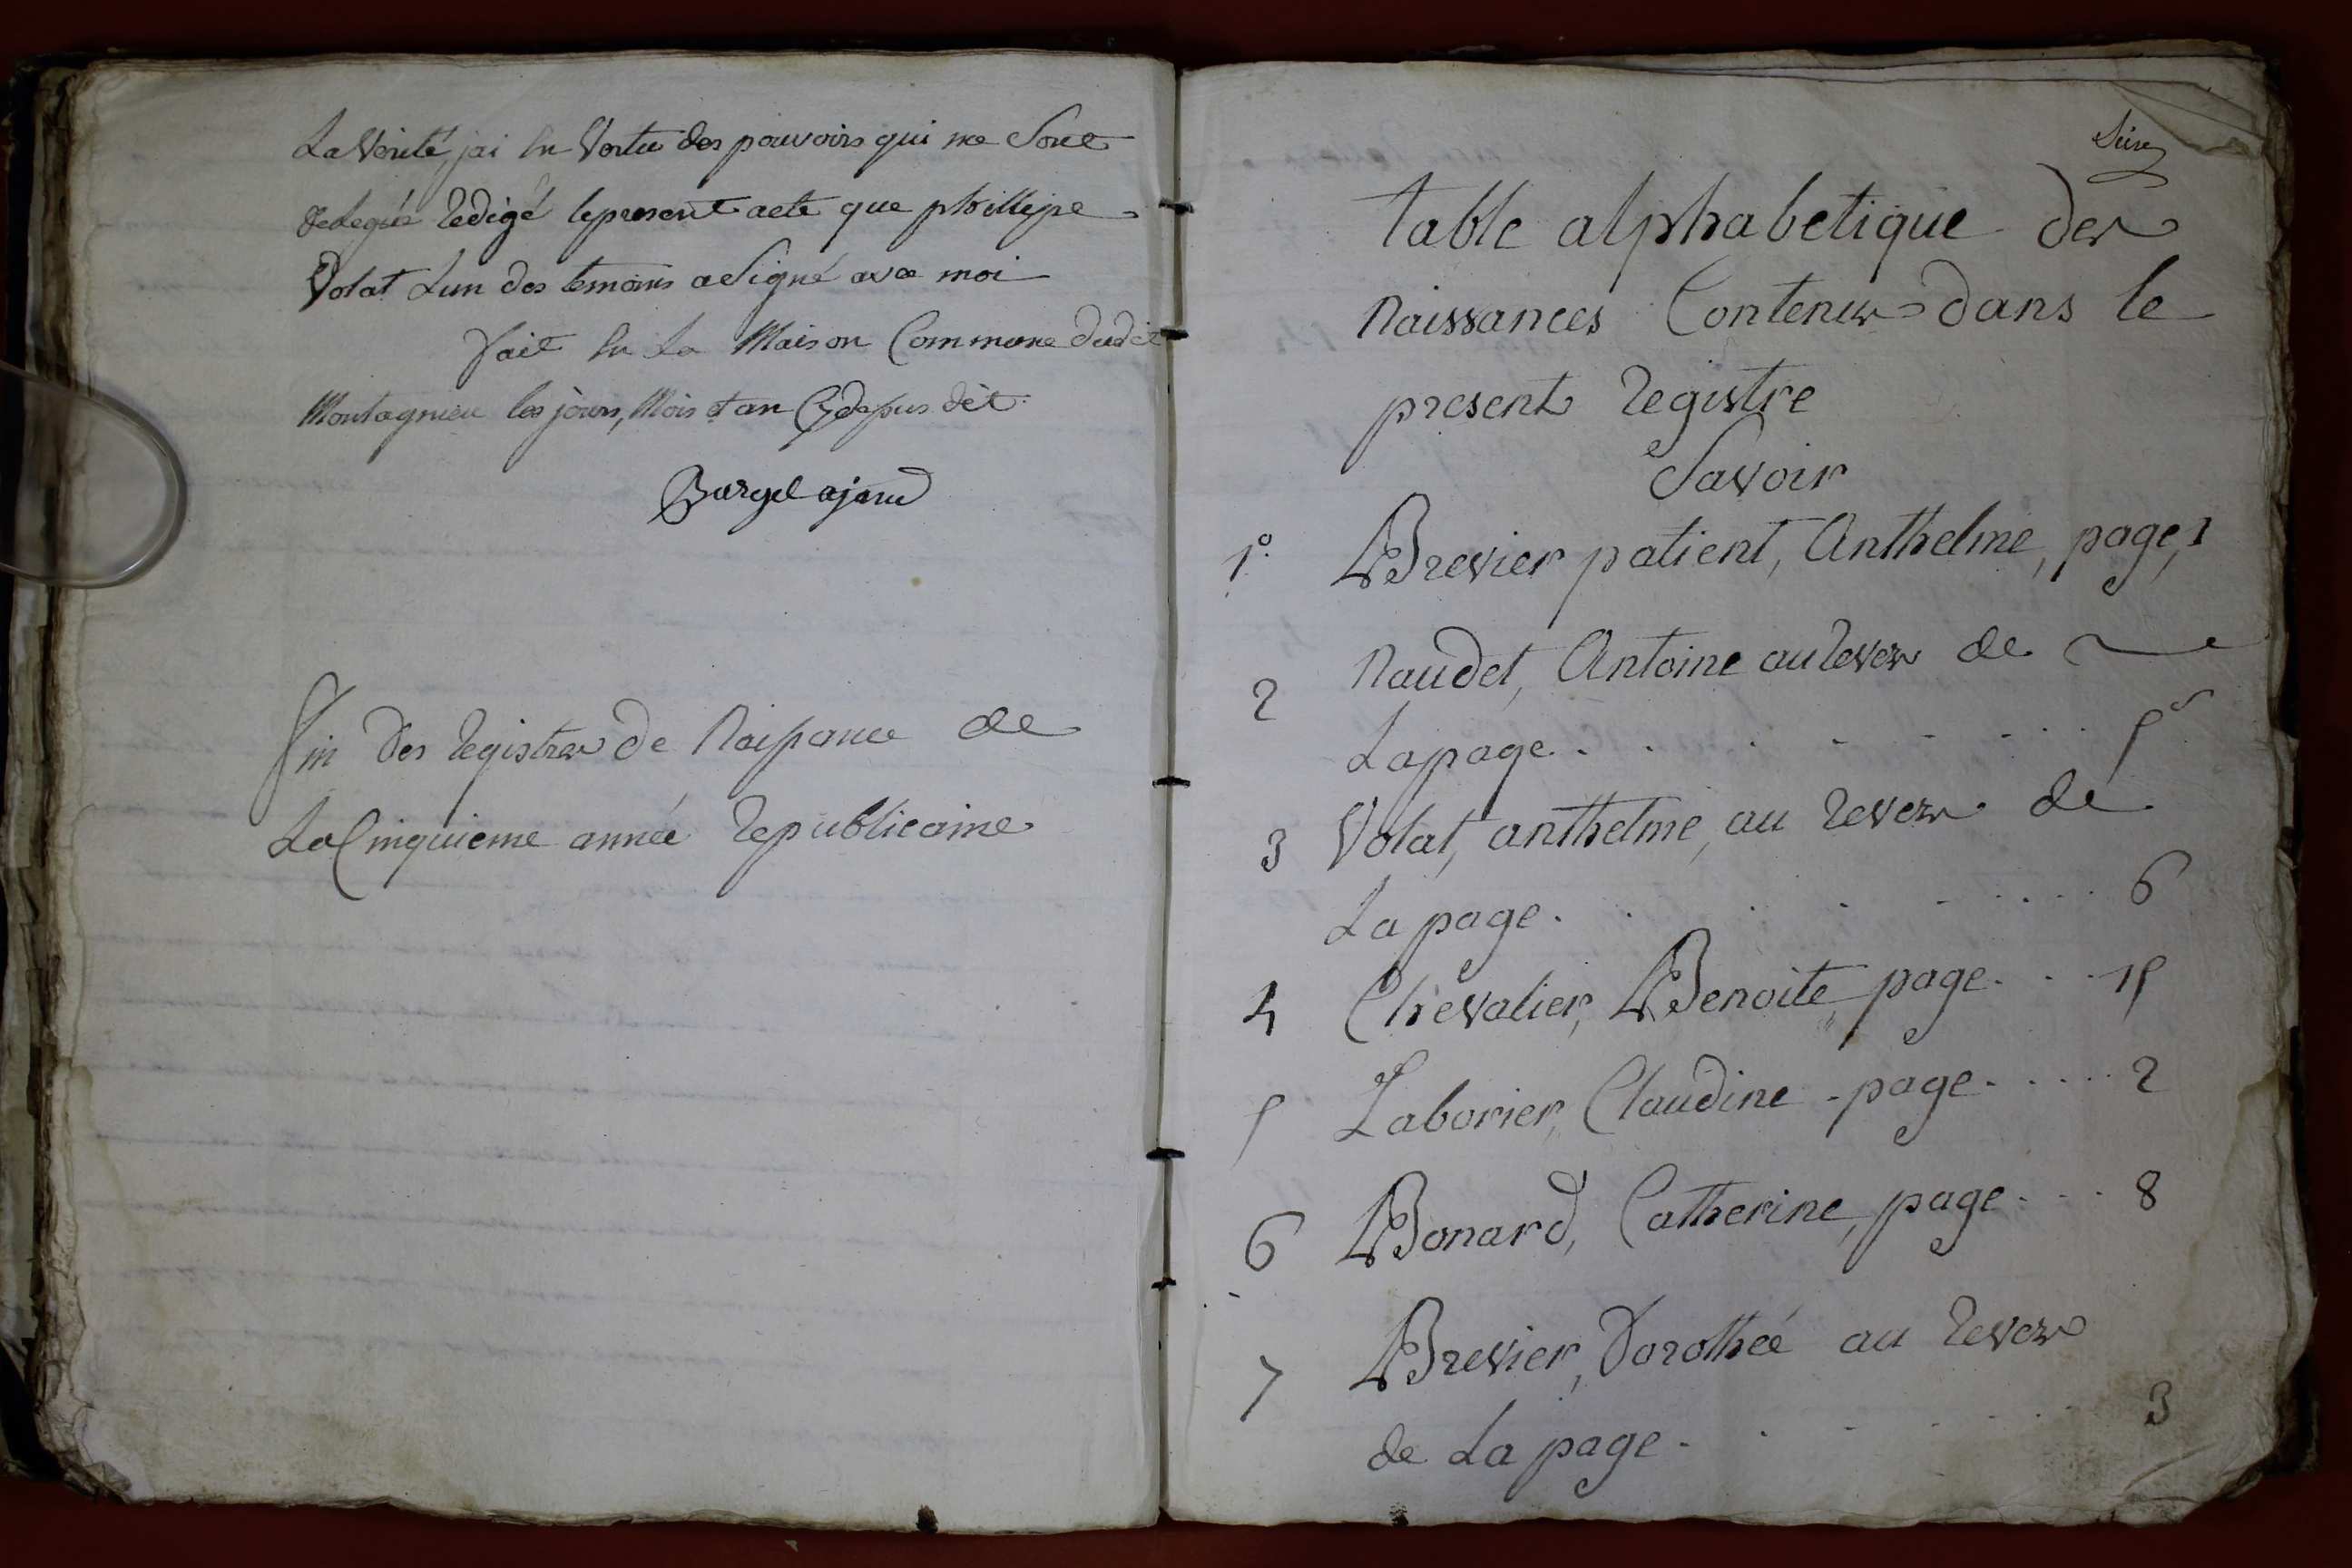 La Verité, jai En Vertu des pouvoirs qui me Sont
delegués Redigé le present acte que phillipe
Volat Lun des temoins a Signé avec moi
fait En La Maison Commune dudit
Montagnieu les jours, Mois et an Cy dessus dit.
fin des Registres de Naissance de
La Cinquieme année Republicaine
table alphabetique des
Naissances Contenues dans le
present Registre
Savoir
1º. Brevier patient, Anthelme, page, 1
2 Naudet, Antoine au Revers de
La page . . . . . . . . 5
3 Volat, anthelme, au Revers de
La page . . . . . . . . 6
4 Chevalier, Benoite, page . . . 15
5 Laborier, Claudine - page . . . . . 2
6 Bonard, Catherine, page . . . 8
7 Brevier, Dorothée au Revers
de La page . . . . . . 3